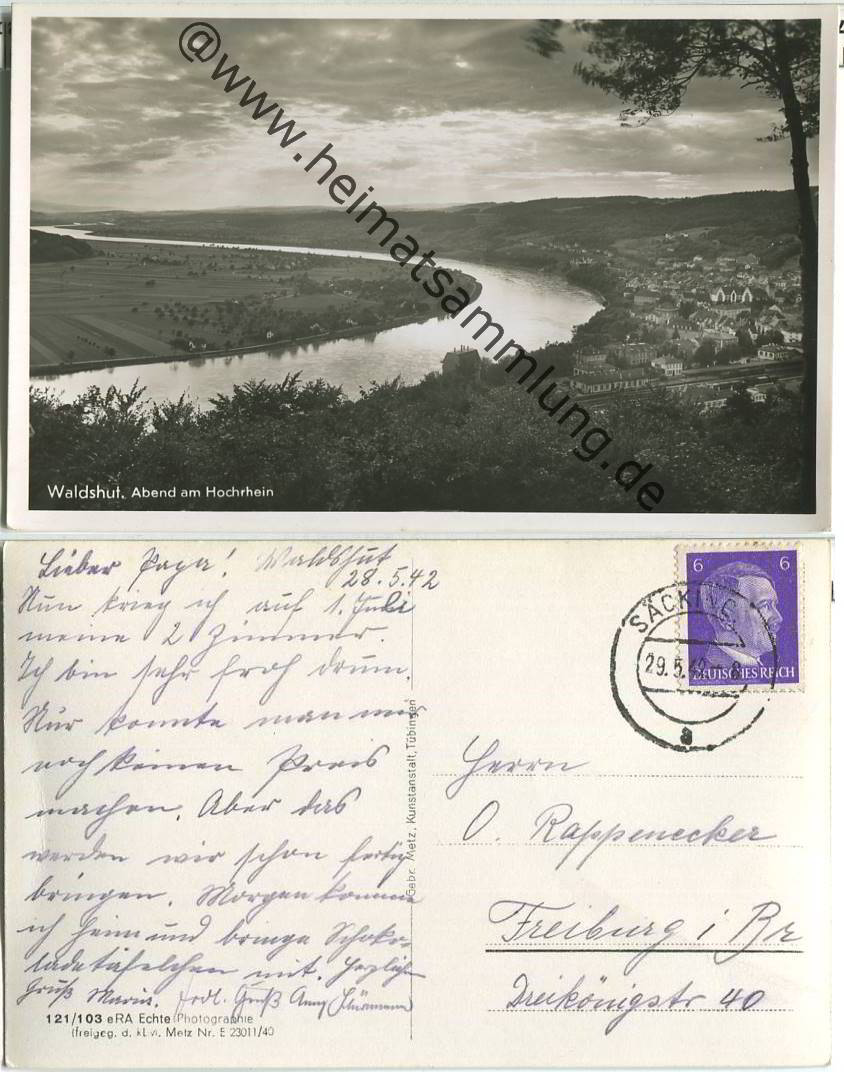 @www.heimatsammlung.de
Waldshut. Abend am Hochrhein
Lieber Papa! Waldshut
28.5.42
Nun krieg ich auf 1. Juli
meine 2 Zimmer.
Ich bin sehr froh drum.
Nur konnte man mir
noch keinen Preis
machen. Aber das
werden wir schon fertig
bringen. Morgen komme
ich heim und bringe Schoko-
ladetäfelchen mit. Herzlich
Gruß Maria. Gruß Anny
121/103 eRA Echte Photographie
(freigeg. d. RLM. Metz Nr. E 23011/40
Gebr. Metz, Kunstanstalt, Tübingen
6 6
DEUTSCHES REICH
SÄCKINGEN
29.5.42
a
Herrn
O. Rappenecker
Freiburg i Br
Dreikönigstr 40